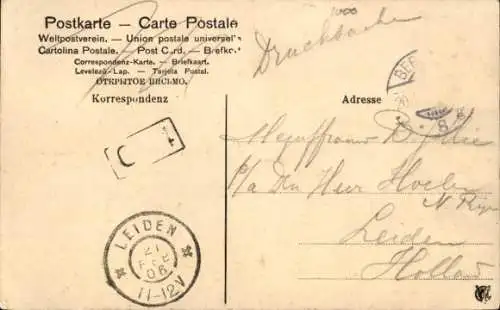 Postkarte — Carte Postale
Weltpostverein. — Union postale universelle
Cartolina Postale. — Post Card. — Brefkort
Correspondenz-Karte. — Briefkaart.
Levelező-Lap. — Tarjeta Postal.
ОТКРЫТОЕ ПИСЬМО.
Korrespondenz
1000
Drucksache
Adresse
C 1
LEIDEN
21
FEB
06
11-12V
BER
8
Mejuffrouw
P/a Den Heer
N. Rijn
Leiden
Holland